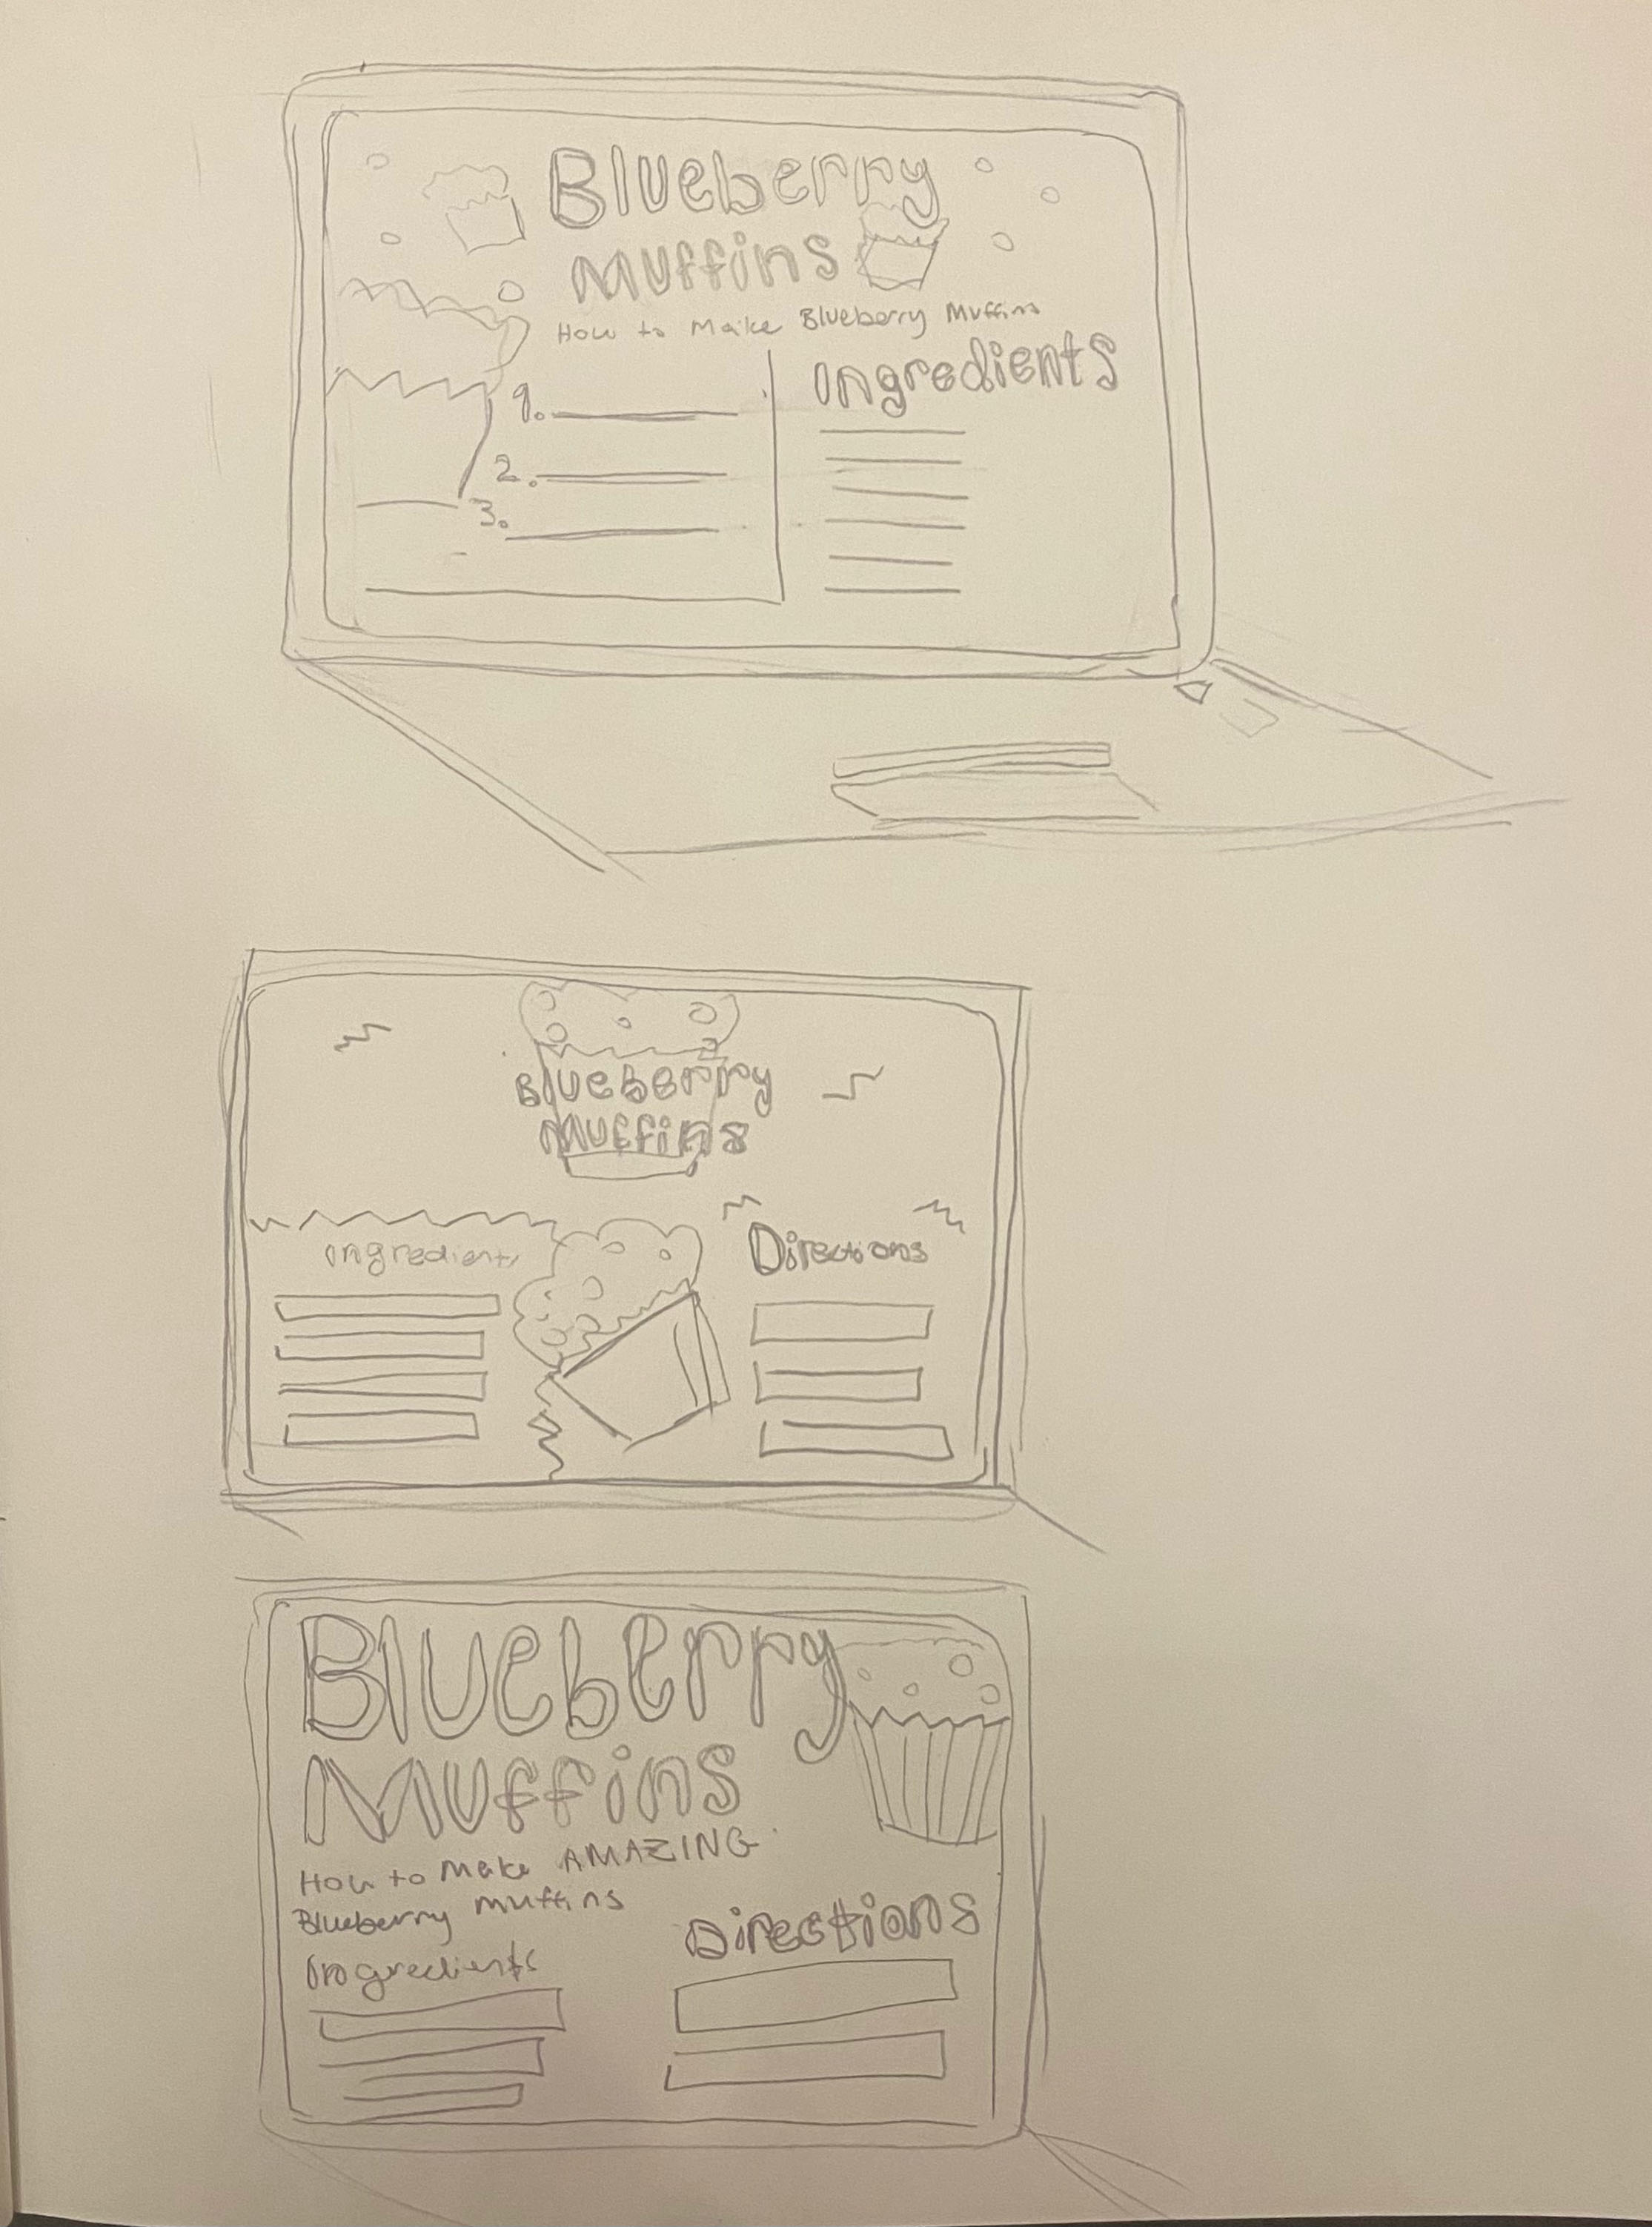 Blueberry
Muffins
How to Make Blueberry Muffins
Ingredients
1.
2.
3.
Blueberry
Muffins
Ingredients
Directions
Blueberry
Muffins
How to Make AMAZING
Blueberry muffins
Directions
Ingredients